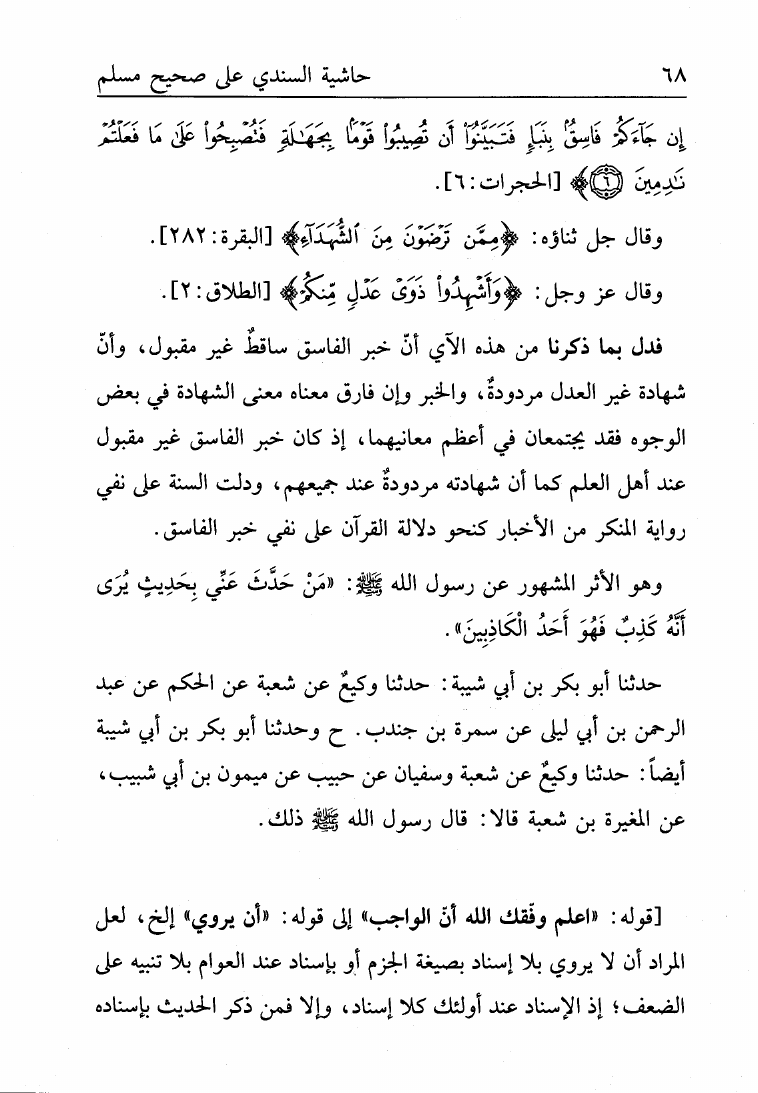 ٦٨ حاشية السندي على صحيح مسلم
إِن جَآءَكُمْ فَاسِقٌۢ بِنَبَإٍ فَتَبَيَّنُوٓا۟ أَن تُصِيبُوا۟ قَوْمًۢا بِجَهَٰلَةٍ فَتُصْبِحُوا۟ عَلَىٰ مَا فَعَلْتُمْ
نَٰدِمِينَ ۝٦﴾ [الحجرات: ٦].
وقال جل ثناؤه: ﴿مِمَّن تَرْضَوْنَ مِنَ ٱلشُّهَدَآءِ﴾ [البقرة: ٢٨٢].
وقال عز وجل: ﴿وَأَشْهِدُوا۟ ذَوَىْ عَدْلٍ مِّنكُمْ﴾ [الطلاق: ٢].
فدل بما ذكرنا من هذه الآي أنّ خبر الفاسق ساقطٌ غير مقبول، وأنّ
شهادة غير العدل مردودةٌ، والخبر وإن فارق معناه معنى الشهادة في بعض
الوجوه فقد يجتمعان في أعظم معانيهما، إذ كان خبر الفاسق غير مقبول
عند أهل العلم كما أن شهادته مردودةٌ عند جميعهم، ودلت السنة على نفي
رواية المنكر من الأخبار كنحو دلالة القرآن على نفي خبر الفاسق.
وهو الأثر المشهور عن رسول الله ﷺ: «مَنْ حَدَّثَ عَنِّي بِحَدِيثٍ يُرَى
أَنَّهُ كَذِبٌ فَهُوَ أَحَدُ الْكَاذِبِينَ».
حدثنا أبو بكر بن أبي شيبة: حدثنا وكيعٌ عن شعبة عن الحكم عن عبد
الرحمن بن أبي ليلى عن سمرة بن جندب. ح وحدثنا أبو بكر بن أبي شيبة
أيضاً: حدثنا وكيعٌ عن شعبة وسفيان عن حبيب عن ميمون بن أبي شبيب،
عن المغيرة بن شعبة قالا: قال رسول الله ﷺ ذلك.
[قوله: «اعلم وفّقك الله أنّ الواجب» إلى قوله: «أن يروي» إلخ، لعل
المراد أن لا يروي بلا إسناد بصيغة الجزم أو بإسناد عند العوام بلا تنبيه على
الضعف؛ إذ الإسناد عند أولئك كلا إسناد، وإلا فمن ذكر الحديث بإسناده